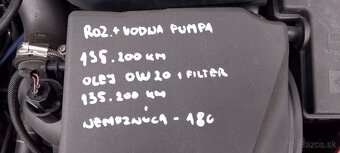 ROZ. + VODNA PUMPA
135.200 KM
OLEJ OW20 + FILTER
135.200 KM
NEMRZNÚCA - 18C
bazar.sk